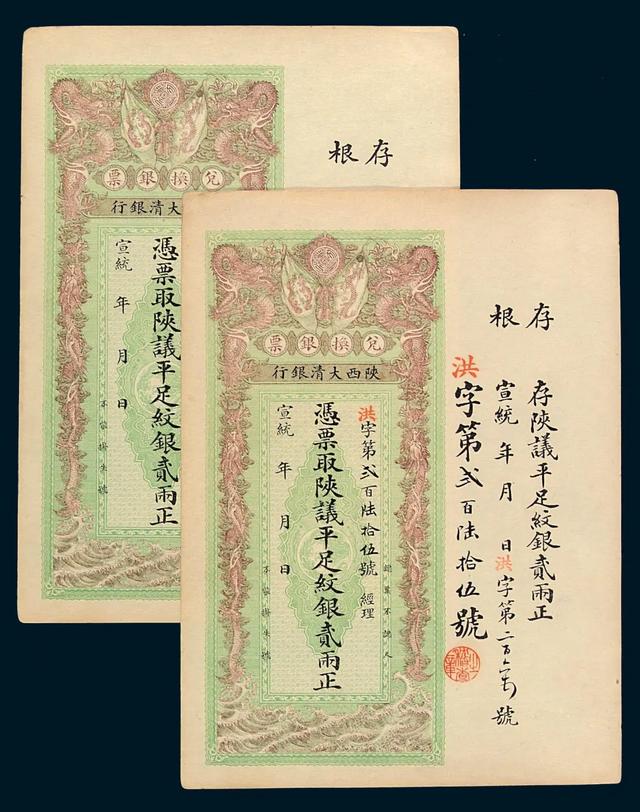 存根
票銀換兌
行銀清大
憑票取陝議平足紋銀貳兩正
宣統 年 月 日
存根
存陝議平足紋銀貳兩正
宣統 年 月 日 洪字第二百 號
洪字第貳百陸拾伍號
票銀換兌
行銀清大西陝
洪字第貳百陸拾伍號 經理
憑票取陝議平足紋銀貳兩正
宣統 年 月 日
認票不認人